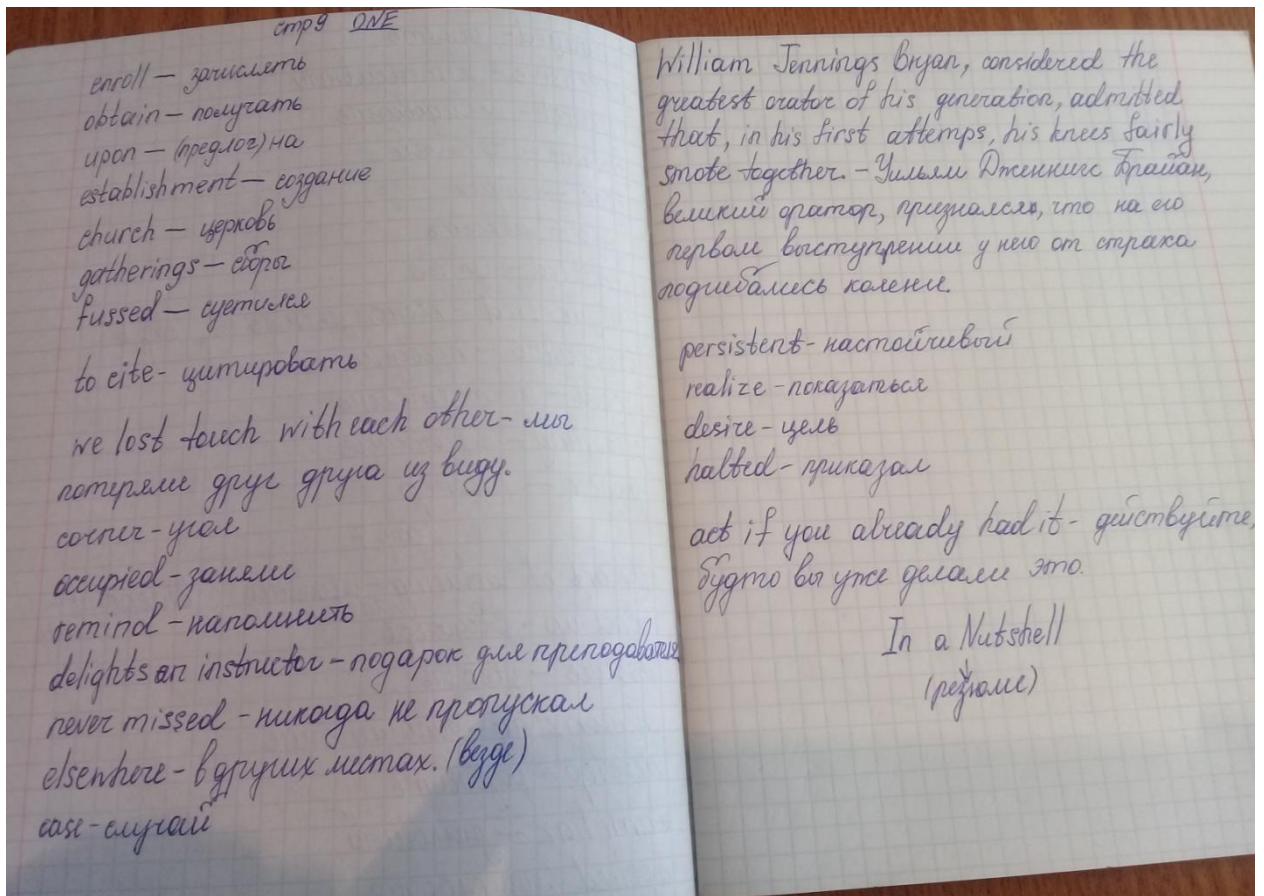 стр 9 ONE
enroll — зачислять
obtain — получать
upon — (предлог) на
establishment — создание
church — церковь
gatherings — сборы
fussed — суетился
to cite - цитировать
we lost touch with each other - мы
потеряли друг друга из виду.
corner - угол
occupied - заняли
remind - напомнить
delights an instructor - подарок для преподавателя
never missed - никогда не пропускал
elsenhere - в других местах. (везде)
case - случай
William Jennings Bryan, considered the
greatest orator of his generation, admitted
that, in his first attemps, his knees fairly
smote together. - Уильям Дженнингс Брайан,
великий оратор, признался, что на его
первом выступлении у него от страха
подгибались колени.
persistent - настойчивый
realize - показаться
desire - цель
halted - приказал
act if you already had it - действуйте,
будто вы уже делали это.
In a Nutshell
(резюме)